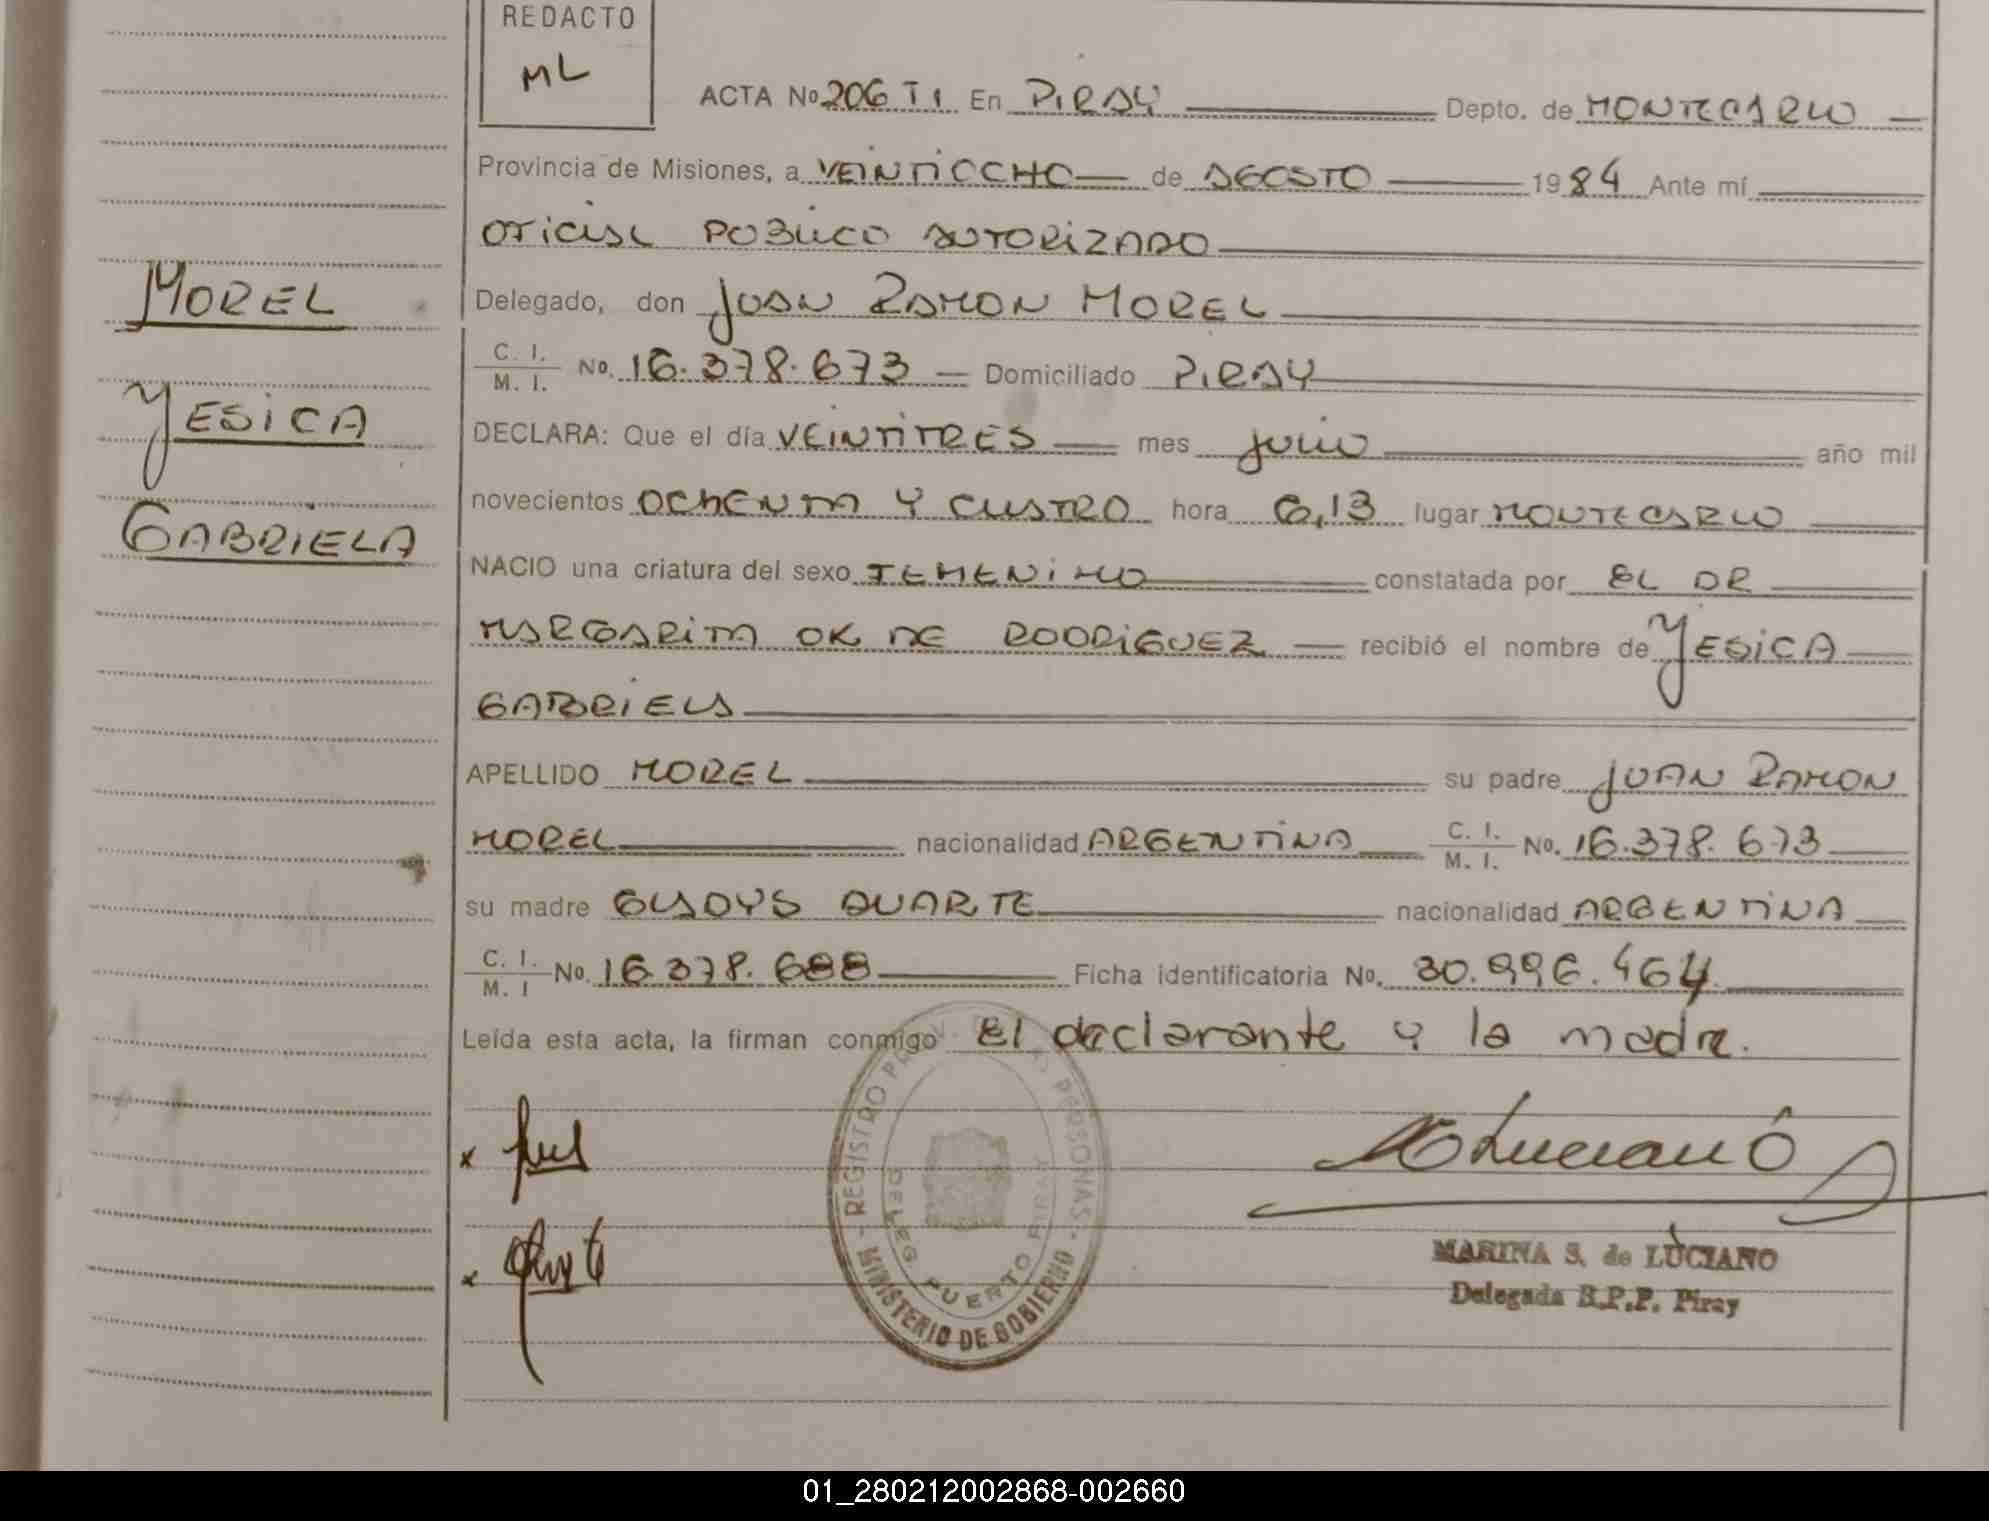 REDACTO
ML
ACTA No 206 T1 En PIRAY Depto. de MONTECARLO
Provincia de Misiones, a VEINTIOCHO de AGOSTO 1984 Ante mí
OFICIAL PUBLICO AUTORIZADO
Delegado, don JUAN RAMON MOREL
C. I. / M. I. No. 16.378.673 Domiciliado PIRAY
DECLARA: Que el día VEINTITRES mes julio año mil
novecientos OCHENTA Y CUATRO hora 6,13 lugar MONTECARLO
NACIO una criatura del sexo FEMENINO constatada por EL DR
MARGARITA OK DE RODRIGUEZ recibió el nombre de YESICA
GABRIELA
APELLIDO MOREL su padre JUAN RAMON
MOREL nacionalidad ARGENTINA C. I. / M. I. No. 16.378.673
su madre GLADYS DUARTE nacionalidad ARGENTINA
C. I. / M. I No. 16.378.688 Ficha identificatoria No. 30.996.464
Leída esta acta, la firman conmigo El declarante y la madre.
MOREL
YESICA
GABRIELA
REGISTRO PROV. DE PERSONAS
MINISTERIO DE GOBIERNO
DELEG. PUERTO PIRAY
MARINA S. de LUCIANO
Delegada R.P.P. Piray
01_280212002868-002660